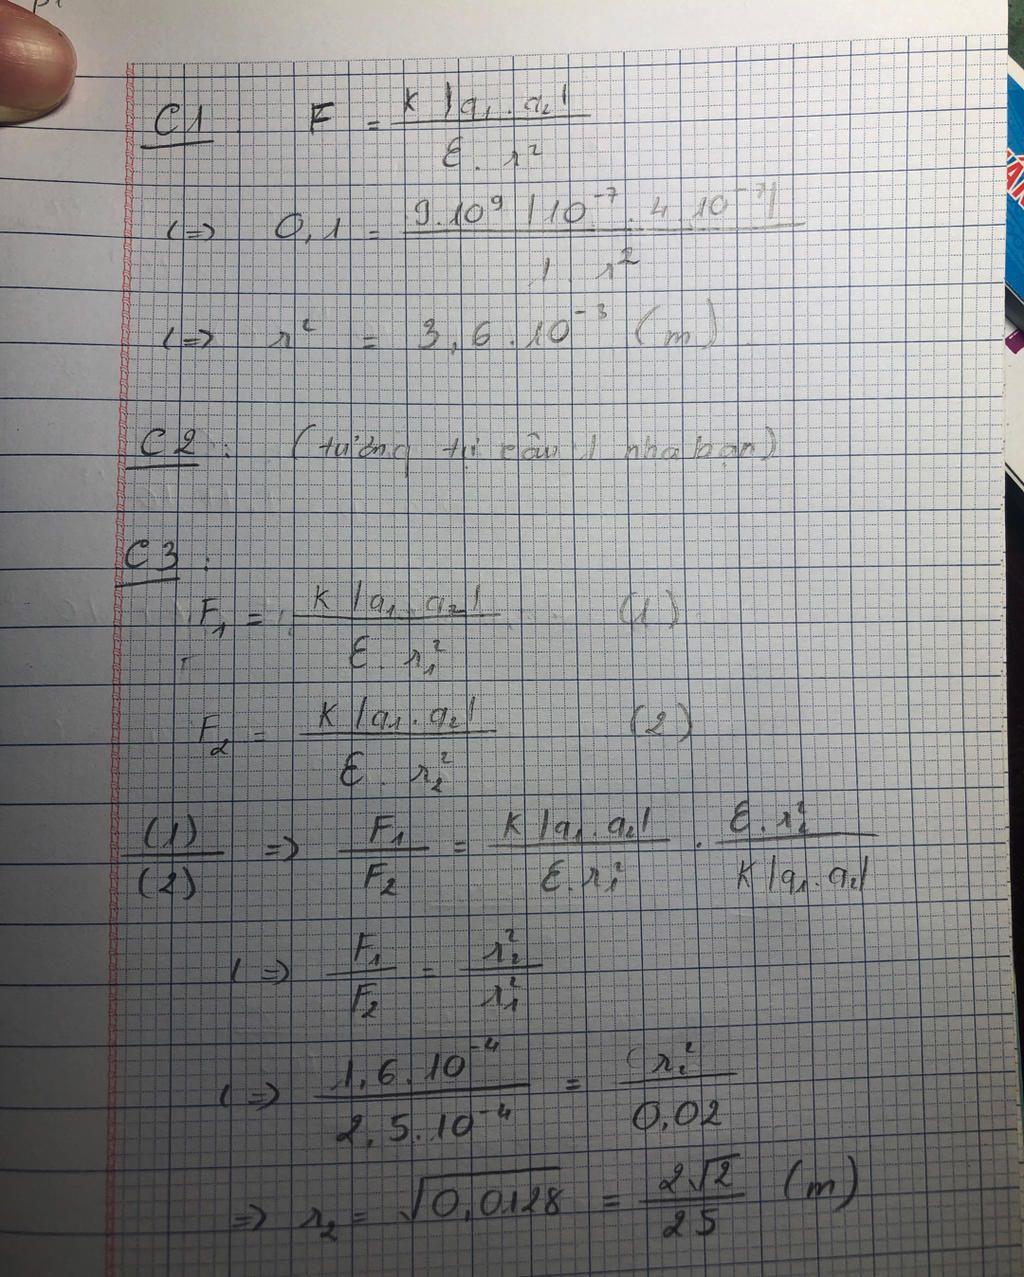 C1 F = K |q₁ . q₂| / ε . r²
<=> 0,1 = 9.10⁹ |10⁻⁷ . 4.10⁻⁷| / 1 . r²
<=> r² = 3,6.10⁻³ (m)
C2 : (tương tự câu 1 nha bạn)
C3 :
F₁ = K |q₁ . q₂| / ε . r₁² (1)
F₂ = K |q₁ . q₂| / ε . r₂² (2)
(1) / (2) => F₁ / F₂ = K |q₁ . q₂| / ε . r₁² . ε . r₂² / K |q₁ . q₂|
<=> F₁ / F₂ = r₂² / r₁²
<=> 1,6.10⁻⁴ / 2,5.10⁻⁴ = r₂² / 0,02
=> r₂ = √0,0128 = 2√2 / 25 (m)